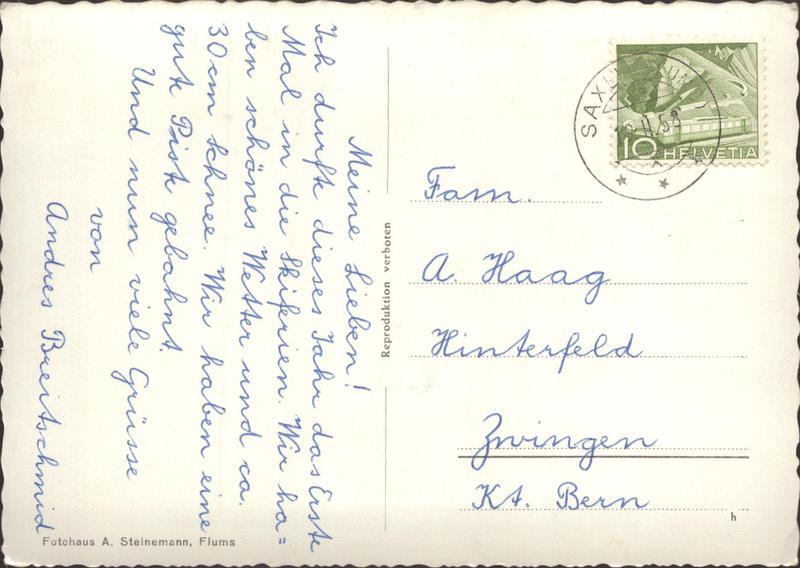 Meine Lieben!
Ich durfte dieses Jahr das Erste
Mal in die Skiferien. Wir ha=
ben schönes Wetter und ca.
30cm Schnee. Wir haben eine
gute Piste gebahnt.
Und nun viele Grüsse
von
Andres Breitschmid
Fotohaus A. Steinemann, Flums
Reproduktion verboten
10 HELVETIA
II.58
Fam.
A. Haag
Hinterfeld
Zwingen
Kt. Bern
h